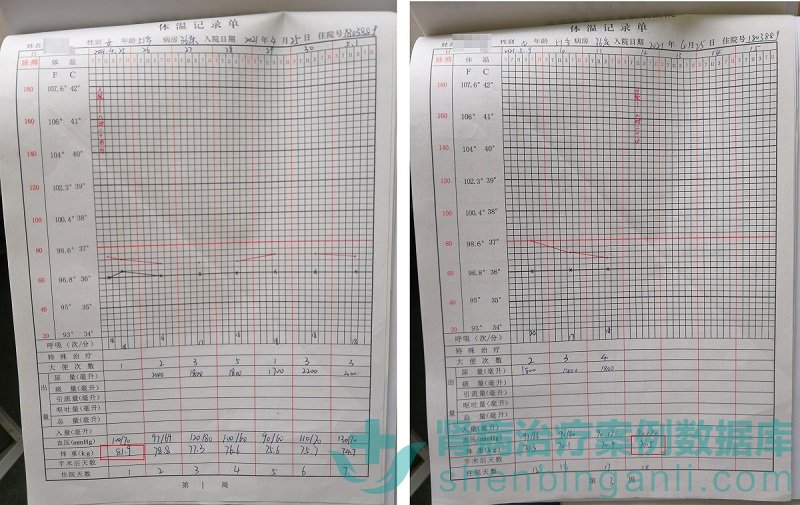 体温记录单
姓名 性别 女 年龄 51岁 病房 36床 入院日期 2021年4月25日 住院号1803889
日期 2021.4.25 26 27 28 29 30 5.1
脉搏 体温
F C
180 107.6° 42°
160 106° 41°
140 104° 40°
120 102.3° 39°
100 100.4° 38°
80 98.6° 37°
60 96.8° 36°
40 95° 35°
20 93° 34°
呼吸(次/分)
特殊治疗
大便次数 1 2 3 5 1 3 3
尿量(毫升) 2000 1800 1800 1700 2200 2000
出量
痰量(毫升)
引流量(毫升)
呕吐量(毫升)
总量(毫升)
入量(毫升)
血压(mmHg) 100/70 97/69 120/80 100/60 90/60 110/70 130/70
体重(kg) 81.9 78.8 77.3 76.6 75.6 75.7 74.7
手术后天数
住院天数 1 2 3 4 5 6 7
第 1 周
体温记录单
性别 女 年龄 51岁 病房 36床 入院日期 2021年4月25日 住院号1803889
脉搏 体温
F C
180 107.6° 42°
160 106° 41°
140 104° 40°
120 102.3° 39°
100 100.4° 38°
80 98.6° 37°
60 96.8° 36°
40 95° 35°
20 93° 34°
呼吸(次/分)
特殊治疗
大便次数 2 3 4
尿量(毫升) 1800 1800
出量
痰量(毫升)
引流量(毫升)
呕吐量(毫升)
总量(毫升)
入量(毫升)
血压(mmHg)
体重(kg)
手术后天数
住院天数 16 17 18
第 周
肾病治疗案例数据库
shenbinganli.com